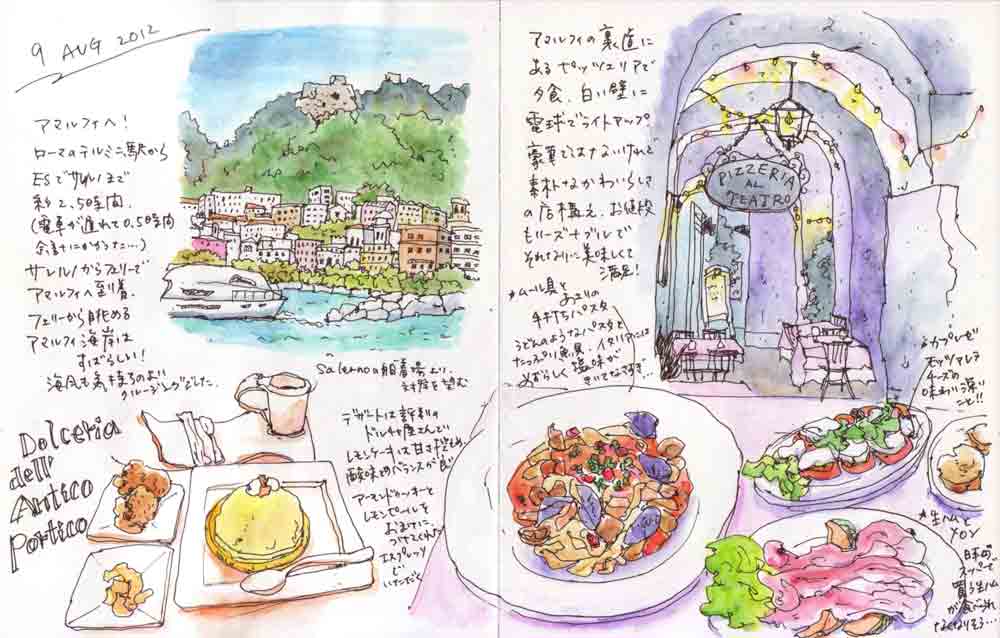 9 AUG 2012
アマルフィへ!
ローマのテルミニ駅から
ESでサレルノまで
約2.5時間.
(電車が遅れて0.5時間
余計にかかった…)
サレルノからフェリーで
アマルフィへ到着.
フェリーから眺める
アマルフィ海岸は
すばらしい!
海風も気持ちのよい
クルージングでした.
Salernoの船着場より.
を望む
Dolceria
dell'
Antico
Portico
デザートは
ドルチェ屋さんで
レモンケーキは甘さ
酸味のバランスが
アーモンドクッキーと
レモンピールを
おまけに
つけてくれた
エスプレッソ
で
いただく
アマルフィの裏道に
あるピッツェリアで
夕食. 白い壁に
電球でライトアップ
豪華ではないけれど
素朴なかわいらしい
の店構え. お値段
もリーズナブルで
それなりに美味しくて
満足!
PIZZERIA
AL
TEATRO
*ムール貝と
あさりの
手打ちパスタ
うどんのようなパスタと
たっぷり魚貝. イタリアには
めずらしく塩味が
きいてなさすぎ…
*カプレーゼ
モッツァレラ
チーズの
味わい深い
こと!!
*生ハムと
メロン
日本の
スーパーで
買う生ハム
が食べられ
なくなりそう…